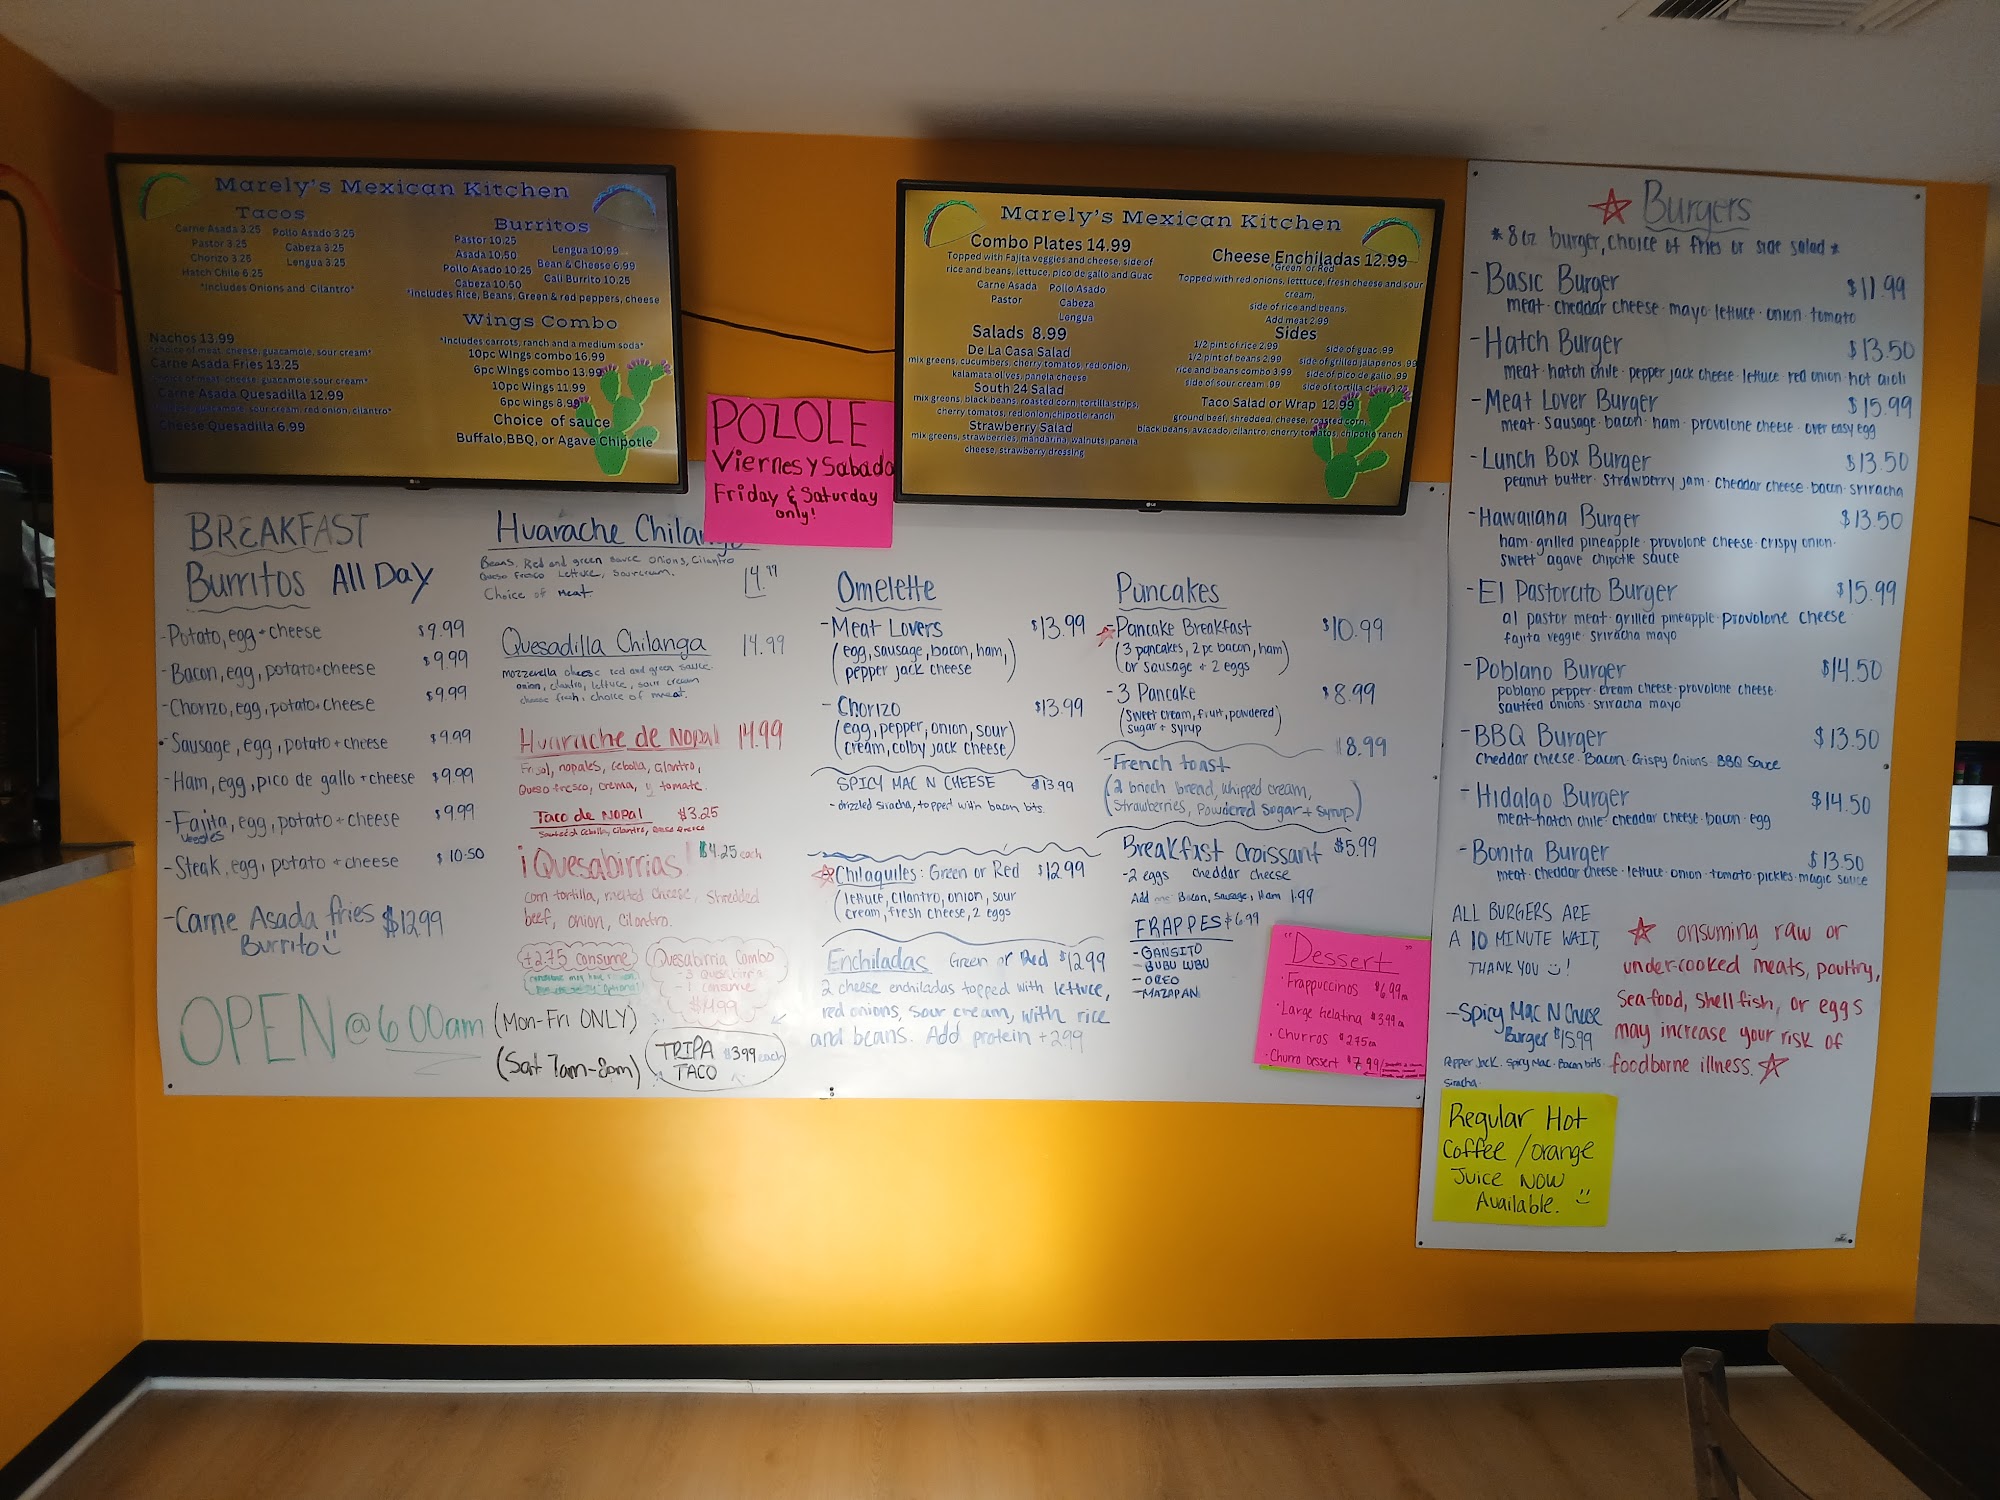 Marely's Mexican Kitchen
Tacos
Carne Asada 3.25 Pollo Asado 3.25
Pastor 3.25 Cabeza 3.25
Chorizo 3.25 Lengua 3.25
Hatch Chile 6.25
*Includes Onions and Cilantro*
Nachos 13.99
*choice of meat, cheese, guacamole, sour cream*
Carne Asada Fries 13.25
*choice of meat, cheese, guacamole, sour cream*
Carne Asada Quesadilla 12.99
guacamole, sour cream, red onion, cilantro*
Cheese Quesadilla 6.99
Burritos
Pastor 10.25 Lengua 10.99
Asada 10.50 Bean & Cheese 6.99
Pollo Asado 10.25 Cali Burrito 10.25
Cabeza 10.50
*Includes Rice, Beans, Green & red peppers, cheese
Wings Combo
*Includes carrots, ranch and a medium soda*
10pc Wings combo 16.99
6pc Wings combo 13.99
10pc Wings 11.99
6pc wings 8.99
Choice of sauce
Buffalo,BBQ, or Agave Chipotle
POZOLE
Viernes Y Sabado
Friday & Saturday
only!
Marely's Mexican Kitchen
Combo Plates 14.99
Topped with Fajita veggies and cheese, side of
rice and beans, lettuce, pico de gallo and Guac
Carne Asada Pollo Asado
Pastor Cabeza
Lengua
Salads 8.99
De La Casa Salad
mix greens, cucumbers, cherry tomatos, red onion,
kalamata olives, panela cheese
South 24 Salad
mix greens, black beans, roasted corn, tortilla strips,
cherry tomatos, red onion,chipotle ranch
Strawberry Salad
mix greens, strawberries, mandarina, walnuts, panela
cheese, strawberry dressing
Cheese Enchiladas 12.99
*Green or Red
Topped with red onions, letttuce, fresh cheese and sour
cream,
side of rice and beans.
Add meat 2.99
Sides
1/2 pint of rice 2.99 side of guac .99
1/2 pint of beans 2.99 side of grilled jalapenos .99
rice and beans combo 3.99 side of pico de gallo .99
side of sour cream .99 side of tortilla
Taco Salad or Wrap 12.99
ground beef, shredded, cheese, roasted corn,
black beans, avacado, cilantro, cherry tomatos, chipotle ranch
BREAKFAST
Burritos All Day
- Potato, egg + cheese $9.99
- Bacon, egg, potato + cheese $9.99
- Chorizo, egg, potato + cheese $9.99
- Sausage, egg, potato + cheese $9.99
- Ham, egg, pico de gallo + cheese $9.99
- Fajita, egg, potato + cheese $9.99
veggies
- Steak, egg, potato + cheese $10.50
- Carne Asada fries $12.99
Burrito
OPEN @ 6:00am (Mon-Fri ONLY)
(Sat 7am-8pm)
Huarache Chilango
Beans, Red and green sauce onions, Cilantro
Queso Fresco Lettuce, Sourcream.
Choice of meat. 14.99
Quesadilla Chilanga 14.99
mozzerella cheese red and green sauce.
onion, cilantro, lettuce, sour cream
cheese fresh, choice of meat.
Huarache de Nopal 14.99
Frijol, nopales, Cebolla, Cilantro,
Queso fresco, crema, y tomate.
Taco de NOPAl $3.25
Cebolla, Cilantro, Queso fresco
¡Quesabirrias! $4.25 each
corn tortilla, melted cheese, Shredded
beef, onion, Cilantro.
+2.75 consume
Quesabirria Combo
- 3 Quesabirria
- 1 consume
$14.99
TRIPA $3.99 each
TACO
Omelette
- Meat Lovers $13.99
(egg, sausage, bacon, ham,
pepper jack cheese)
- Chorizo $13.99
(egg, pepper, onion, sour
cream, colby jack cheese)
SPICY MAC N CHEESE $13.99
- drizzled siracha, topped with bacon bits.
Chilaquiles: Green or Red $12.99
(lettuce, cilantro, onion, sour
cream, fresh cheese, 2 eggs
Enchiladas Green or Red $12.99
2 cheese enchiladas topped with lettuce,
red onions, sour cream, with rice
and beans. Add protein +2.99
Pancakes
- Pancake Breakfast $10.99
(3 pancakes, 2 pc bacon, ham)
or sausage + 2 eggs
- 3 Pancake $8.99
(Sweet cream, fruit, powdered)
sugar + syrup
- French toast $8.99
(2 brioch bread, whipped cream,
Strawberries, Powdered Sugar + Syrup)
Breakfast Croissant $5.99
-2 eggs cheddar cheese
Add one: Bacon, Sausage, Ham 1.99
FRAPPES $6.99
- GANSITO
- BUBU LUBU
- OREO
- MAZAPAN
"Dessert"
· Frappuccinos $6.99
· Large Gelatina $3.99
· Churros $2.75
· Churro Dessert $7.99
Burgers
* 8 oz burger, choice of fries or side salad *
- Basic Burger $11.99
meat · cheddar cheese · mayo · lettuce · onion · tomato
- Hatch Burger $13.50
meat · hatch chile · pepper jack cheese · lettuce · red onion · hot aioli
- Meat Lover Burger $15.99
meat · sausage · bacon · ham · provolone cheese · over easy egg
- Lunch Box Burger $13.50
peanut butter · strawberry jam · cheddar cheese · bacon · sriracha
- Hawaiiana Burger $13.50
ham · grilled pineapple · provolone cheese · crispy onion ·
sweet agave chipotle sauce
- El Pastorcito Burger $15.99
al pastor meat · grilled pineapple · provolone cheese
fajita veggie · sriracha mayo
- Poblano Burger $14.50
poblano pepper · cream cheese · provolone cheese
sautéed onions · sriracha mayo
- BBQ Burger $13.50
Cheddar cheese · Bacon · Crispy Onions BBQ Sauce
- Hidalgo Burger $14.50
meat · hatch chile · cheddar cheese · bacon · egg
- Bonita Burger $13.50
meat · cheddar cheese · lettuce · onion · tomato · pickles · magic sauce
ALL BURGERS ARE
A 10 MINUTE WAIT,
THANK YOU !
- Spicy Mac N Cheese
Burger $15.99
Pepper Jack · Spicy Mac · Bacon bits ·
Siracha
onsuming raw or
under-cooked meats, poultry,
seafood, shellfish, or eggs
may increase your risk of
foodborne illness.
Regular Hot
Coffee / Orange
Juice NOW
Available.